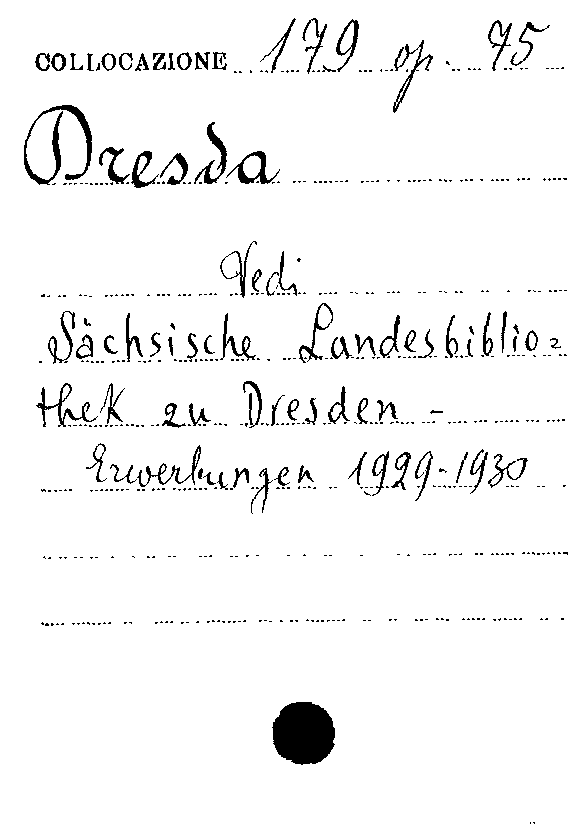 COLLOCAZIONE 179 op. 75
Dresda
Vedi
Sächsische Landesbiblio=
thek zu Dresden -
Erwerbungen 1929-1930